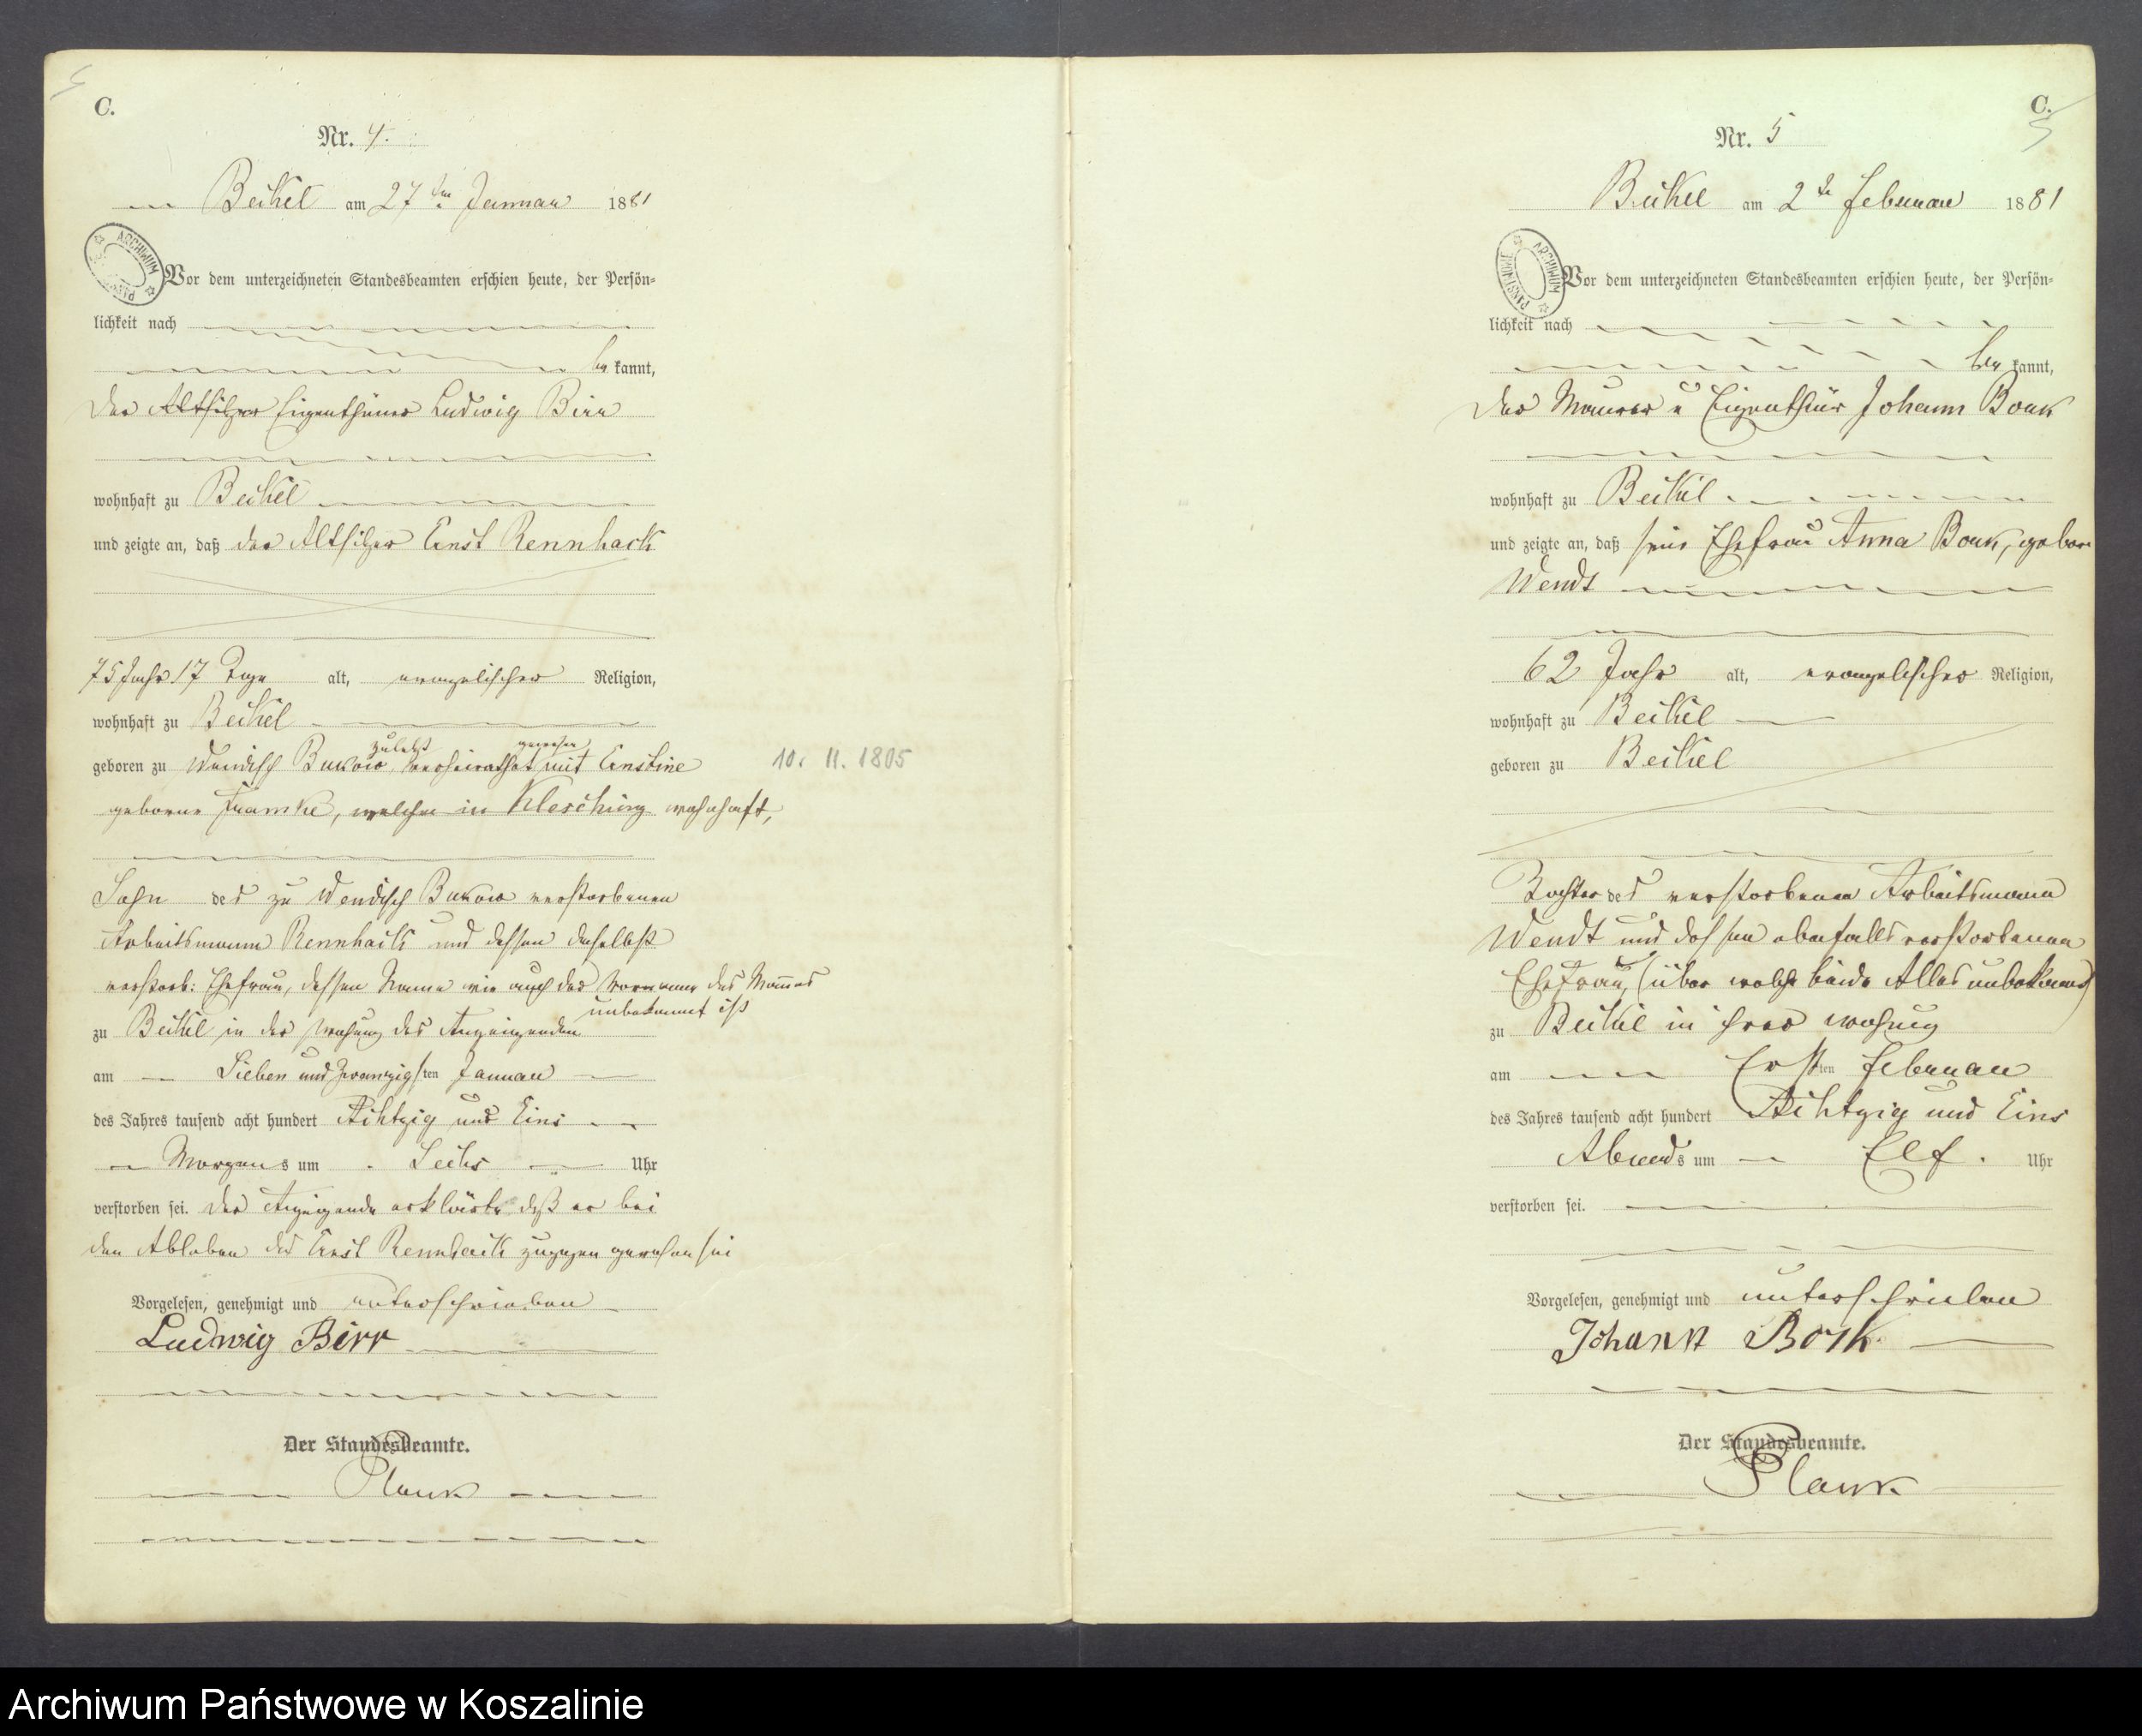 C.
Nr. 4.
Beikel am 27ten Januar 1881
ARCHIWUM
Vor dem unterzeichneten Standesbeamten erschien heute, der Persön-
lichkeit nach
be kannt,
der Altsitzer Eigenthümer Ludwig Birr
wohnhaft zu Beikel
und zeigte an, daß der Altsitzer Ernst Rennhack
75 Jahr 17 Tage alt, evangelischer Religion,
wohnhaft zu Beikel
zuletzt gewesen
geboren zu Wendisch Bukow verheirathet mit Ernstine
10. 11. 1805
geborne Framke, welche in Klesching wohnhaft,
Sohn des zu Wendisch Bukow verstorbenen
Arbeitsmann Rennhack und dessen daselbst
verstorb: Ehefrau, dessen Name wie auch der Vorname des Mannes
unbekannt ist
zu Beikel in der Wohnung des Anzeigenden
am Sieben und Zwanzigsten Januar
des Jahres tausend acht hundert Achtzig und Eins
Morgens um Sechs Uhr
verstorben sei. Der Anzeigende erklärte daß er bei
den Ableben des Ernst Rennhack zugegen gewesen sei
Vorgelesen, genehmigt und unterschrieben
Ludwig Birr
Der Standesbeamte.
Plank
C.
5
Nr. 5
Beikel am 2te Februar 1881
ARCHIWUM PAŃSTWOWE
Vor dem unterzeichneten Standesbeamten erschien heute, der Persön-
lichkeit nach
be kannt,
der Maurer u Eigenthür Johann Bork
wohnhaft zu Beikel
und zeigte an, daß seine Ehefrau Anna Bork, gebor
Wendt
62 Jahr alt, evangelischer Religion,
wohnhaft zu Beikel
geboren zu Beikel
Tochter des verstorbenen Arbeitsmann
Wendt und dessen ebenfalls verstorbenen
Ehefrau, (über welche beide Alles unbekannt)
zu Beikel in ihrer Wohnung
am Ersten Februar
des Jahres tausend acht hundert Achtzig und Eins
Abends um Elf Uhr
verstorben sei.
Vorgelesen, genehmigt und unterschrieben
Johann Bork
Der Standesbeamte.
Plank
Archiwum Państwowe w Koszalinie